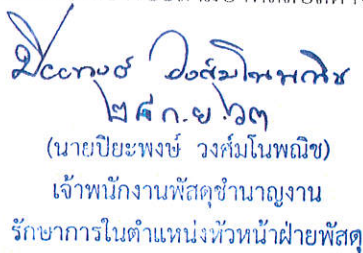 ปิยะพงษ์ วงศ์มโนพณิช
๒๘ ก.ย. ๖๓
(นายปิยะพงษ์ วงศ์มโนพณิช)
เจ้าพนักงานพัสดุชำนาญงาน
รักษาการในตำแหน่งหัวหน้าฝ่ายพัสดุ